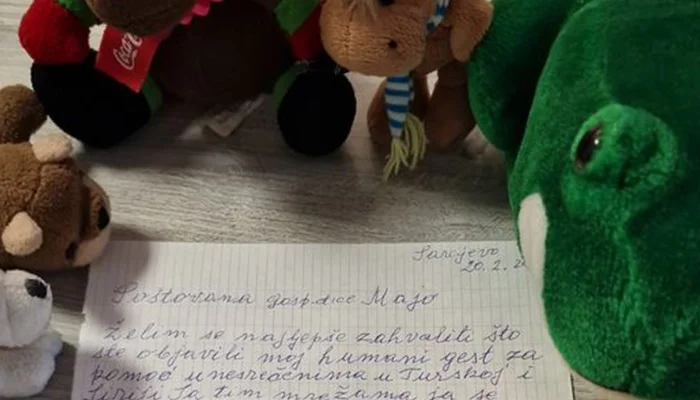 Coca-Cola
Sarajevo
20.2.2
Poštovana gospođice Majo
Želim se najljepše zahvaliti što
ste objavili moj humani gest za
pomoć unesrećnima u Turskoj i
Siriji Ja tim mrežama ja se